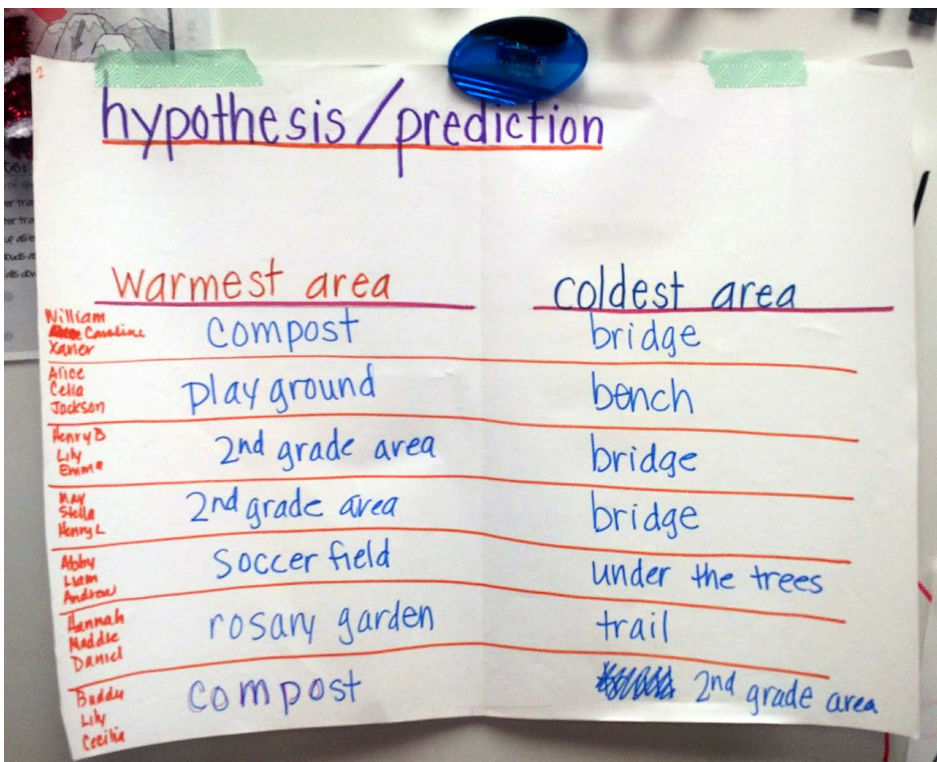 2
hypothesis/prediction
warmest area coldest area
William
Caroline
Xavier
compost bridge
Alice
Celia
Jackson
playground bench
Henry B
Lily
Emma
2nd grade area bridge
May
Stella
Henry L
2nd grade area bridge
Abby
Liam
Andrew
soccer field under the trees
Hannah
Maddie
Daniel
rosary garden trail
Buddy
Lily
Cecilia
compost 2nd grade area